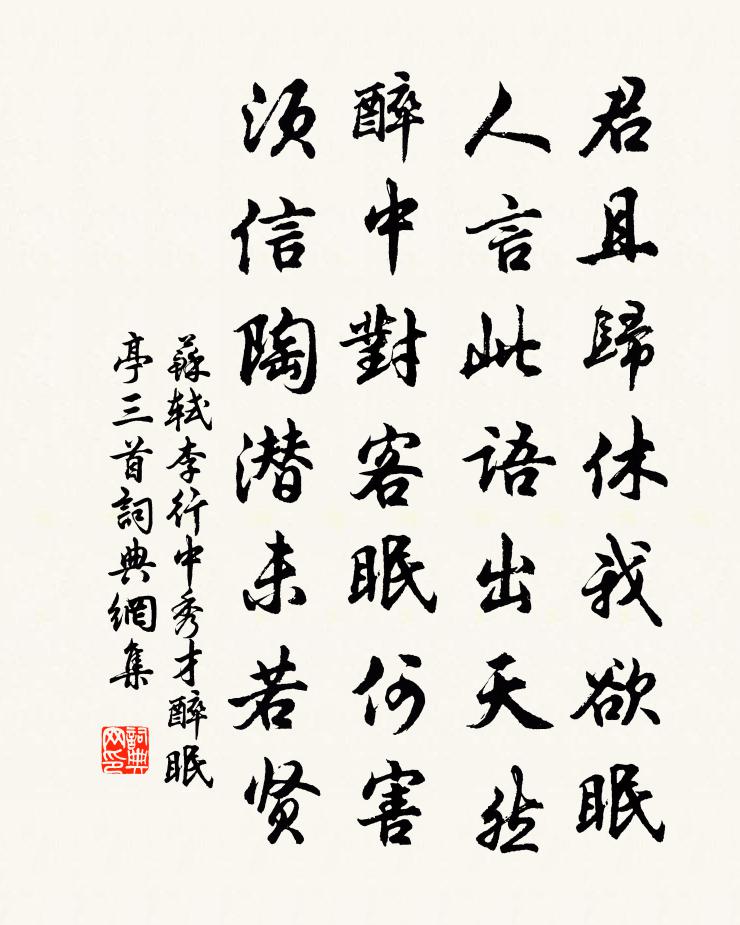 君且歸休我欲眠
人言此語出天然
醉中對客眠何害
須信陶潜未若贤
蘇軾李行中秀才醉眠
亭三首詞典網集
詞典
网印